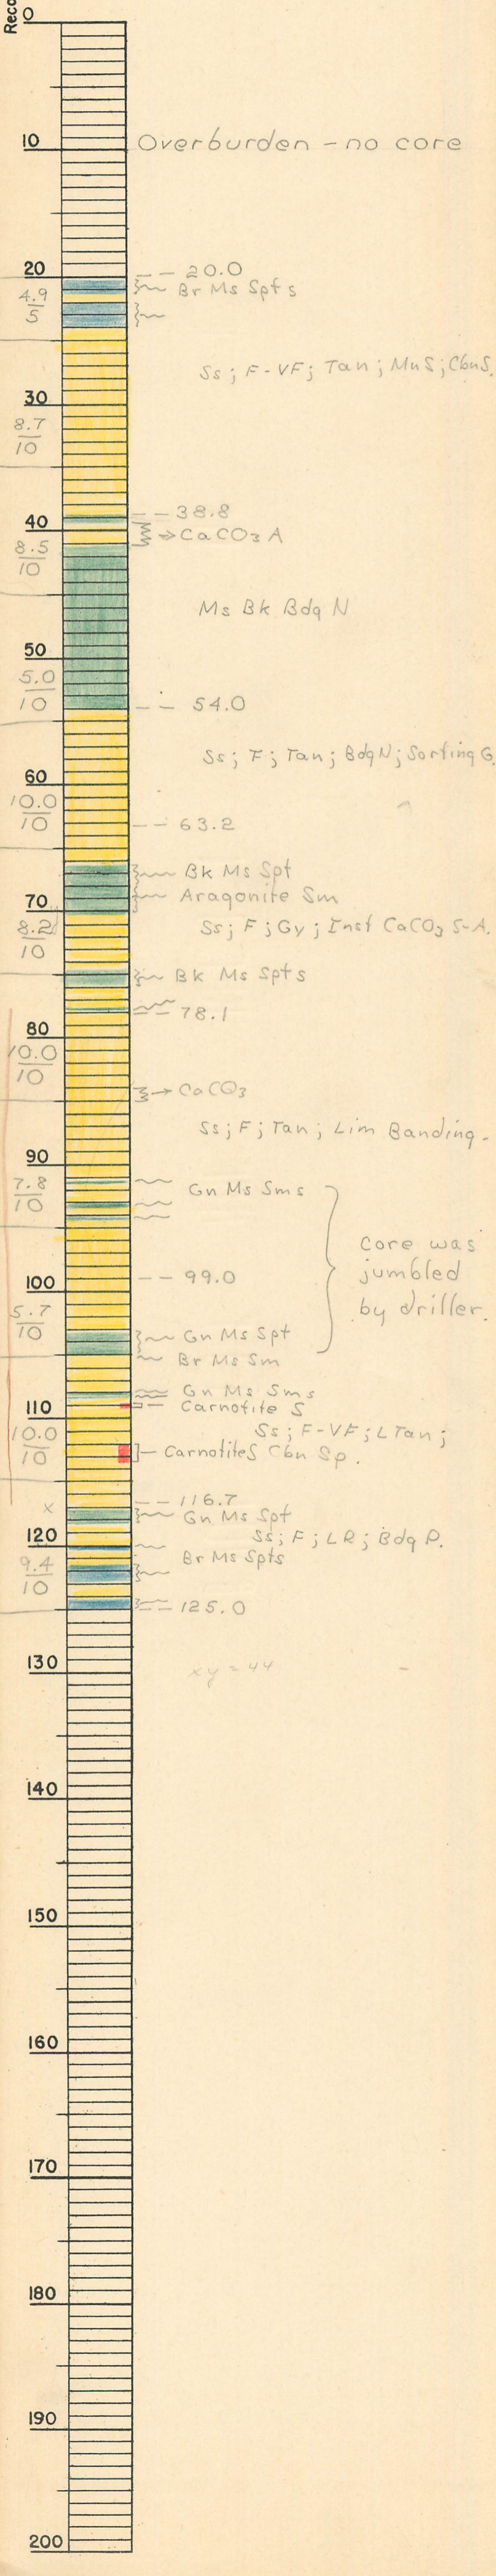 Reco
0
10 Overburden - no core
20 -- 20.0
4.9/5 Br Ms Spts
Ss; F-VF; Tan; MnS; CbnS.
30
8.7/10
-- 38.8
40 → CaCO3 A
8.5/10
Ms Bk Bdg N
50
5.0/10 -- 54.0
Ss; F; Tan; Bdg N; Sorting G.
60
10.0/10 -- 63.2
Bk Ms Spt
Aragonite Sm
70
8.2/10 Ss; F; Gy; Inst CaCO3 S-A.
Bk Ms Spts
78.1
80
10.0/10
→ CaCO3
Ss; F; Tan; Lim Banding.
90
7.8/10 Gn Ms Sms
Core was
jumbled
by driller.
100 -- 99.0
5.7/10 Gn Ms Spt
Br Ms Sm
Gn Ms Sms
Carnotite S
110
Ss; F-VF; L Tan;
10.0/10 Carnotite S Cbn Sp.
-- 116.7
x Gn Ms Spt
120 Ss; F; LR; Bdg P.
Br Ms Spts
9.4/10
125.0
130 xy = 44
140
150
160
170
180
190
200